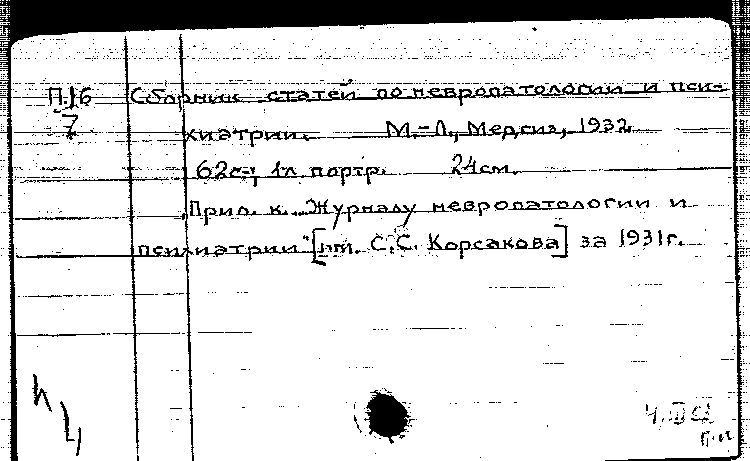 П.16 Сборник статей по невропатологии и пси-
7
хиатрии. М.-Л., Медгиз, 1932
62с., 1л. портр. 24см.
Прил. к „Журналу невропатологии и
психиатрии" [им. С.С. Корсакова] за 1931г.